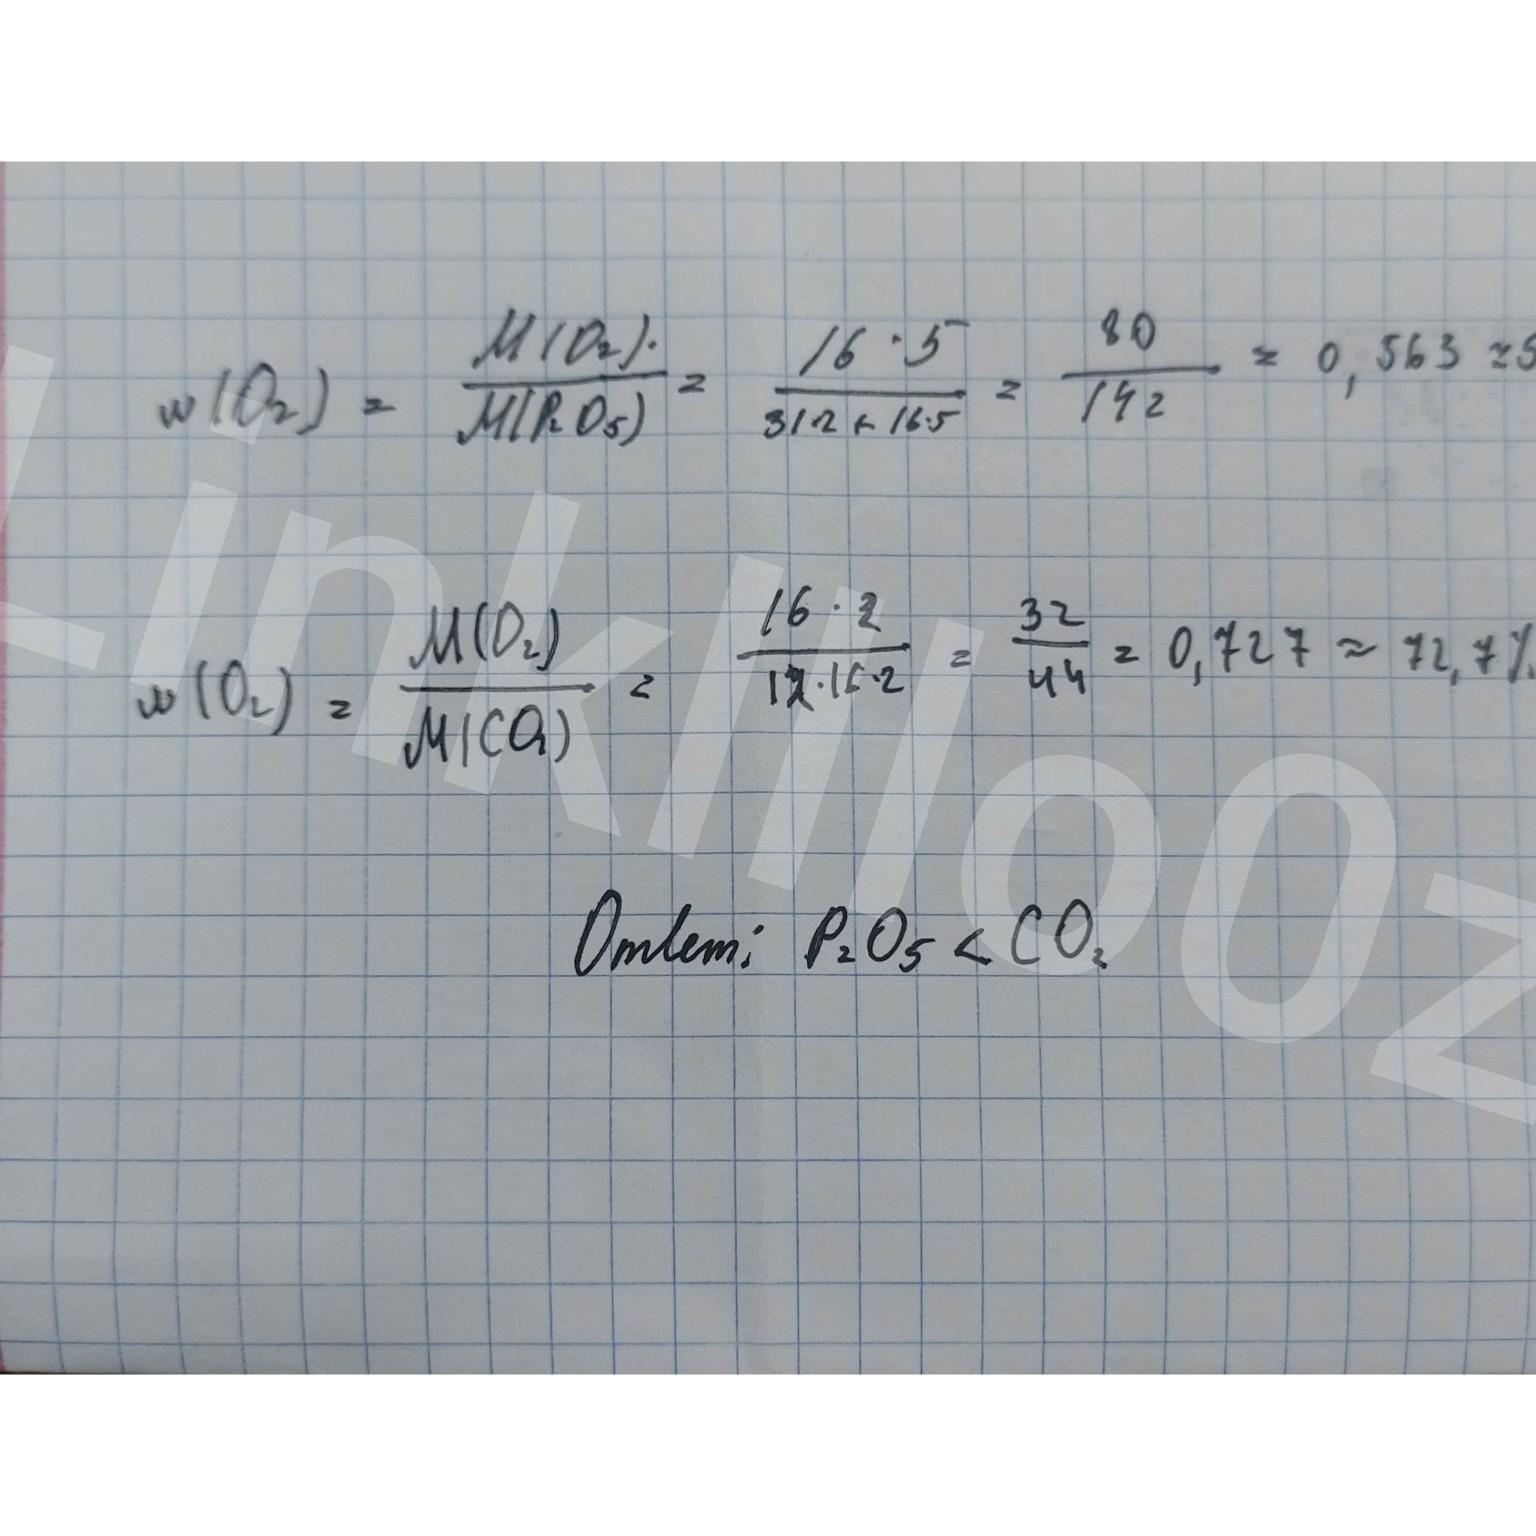 w(O₂) = M(O₂)· / M(P₂O₅) = 16·5 / 31·2 + 16·5 = 80 / 142 ≈ 0,563 ≈ 5
w(O₂) = M(O₂) / M(CO₂) = 16·2 / 12·16·2 = 32 / 44 = 0,727 ≈ 72,7%
Ответ: P₂O₅ < CO₂
Linkllooz